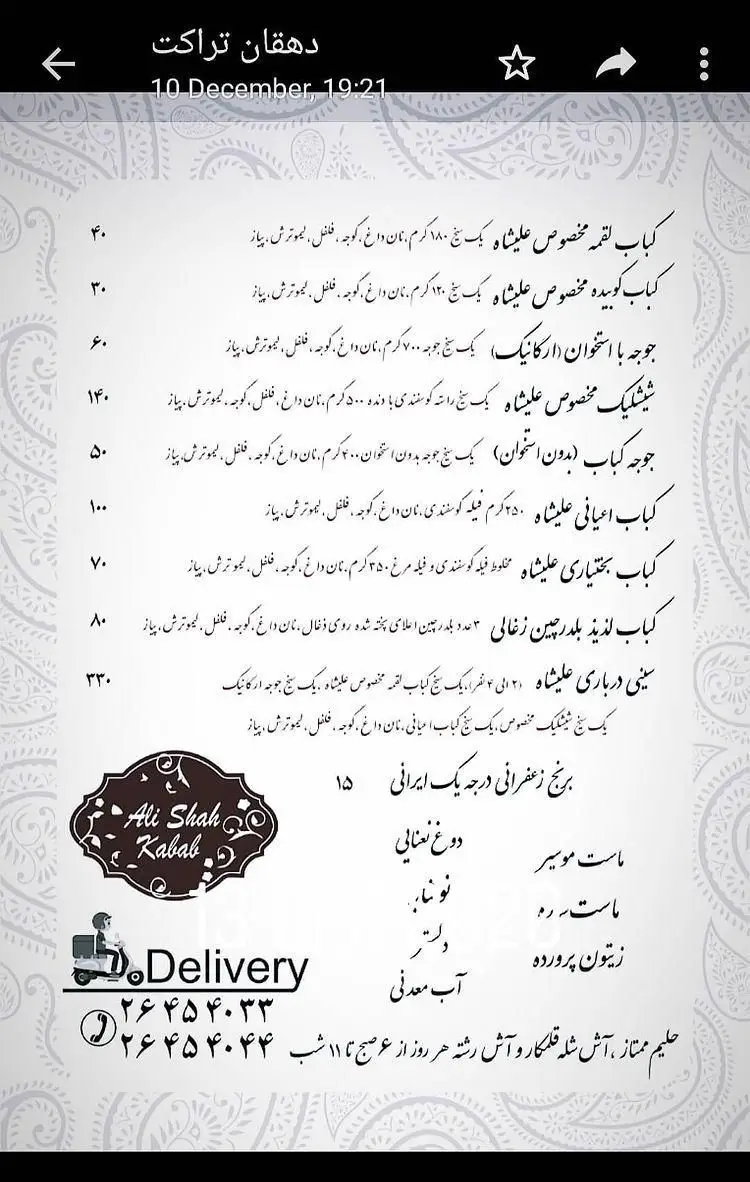 دهقان تراکت
10 December, 19:21
کباب لقمه مخصوص علیشاه یک سیخ ۱۸۰ گرم، نان داغ، گوجه، فلفل، لیموترش، پیاز ۴۰
کباب کوبیده مخصوص علیشاه یک سیخ ۱۲۰ گرم، نان داغ، گوجه، فلفل، لیموترش، پیاز ۳۰
جوجه با استخوان (ارگانیک) یک سیخ جوجه ۷۰۰ گرم، نان داغ، گوجه، فلفل، لیموترش، پیاز ۶۰
شیشلیک مخصوص علیشاه یک سیخ راسته گوسفندی با دنده ۵۰۰ گرم، نان داغ، فلفل، گوجه، لیموترش، پیاز ۱۴۰
جوجه کباب (بدون استخوان) یک سیخ جوجه بدون استخوان ۴۰۰ گرم، نان داغ، گوجه، فلفل، لیموترش، پیاز ۵۰
کباب اعیانی علیشاه ۲۵۰ گرم فیله گوسفندی، نان داغ، گوجه، فلفل، لیموترش، پیاز ۱۰۰
کباب بختیاری علیشاه مخلوط فیله گوسفندی و فیله مرغ ۳۵۰ گرم، نان داغ، گوجه، فلفل، لیموترش، پیاز ۷۰
کباب لذیذ بلدرچین زغالی ۳ عدد بلدرچین اعلای پخته شده روی ذغال، نان داغ، گوجه، فلفل، لیموترش، پیاز ۸۰
سینی درباری علیشاه (۲ الی ۴ نفر)، یک سیخ کباب لقمه مخصوص علیشاه، یک سیخ جوجه ارگانیک ۳۳۰
یک سیخ شیشلیک مخصوص، یک سیخ کباب اعیانی، نان داغ، گوجه، فلفل، لیموترش، پیاز
برنج زعفرانی درجه یک ایرانی ۱۵
ماست موسیر
ماست
زیتون پرورده
دوغ نعنایی
آب معدنی
Ali Shah
Kabab
Delivery
۲۶۴۵۴۰۳۳
۲۶۴۵۴۰۴۴
حلیم ممتاز، آش شله قلمکار و آش رشته هر روز از ۶ صبح تا ۱۱ شب